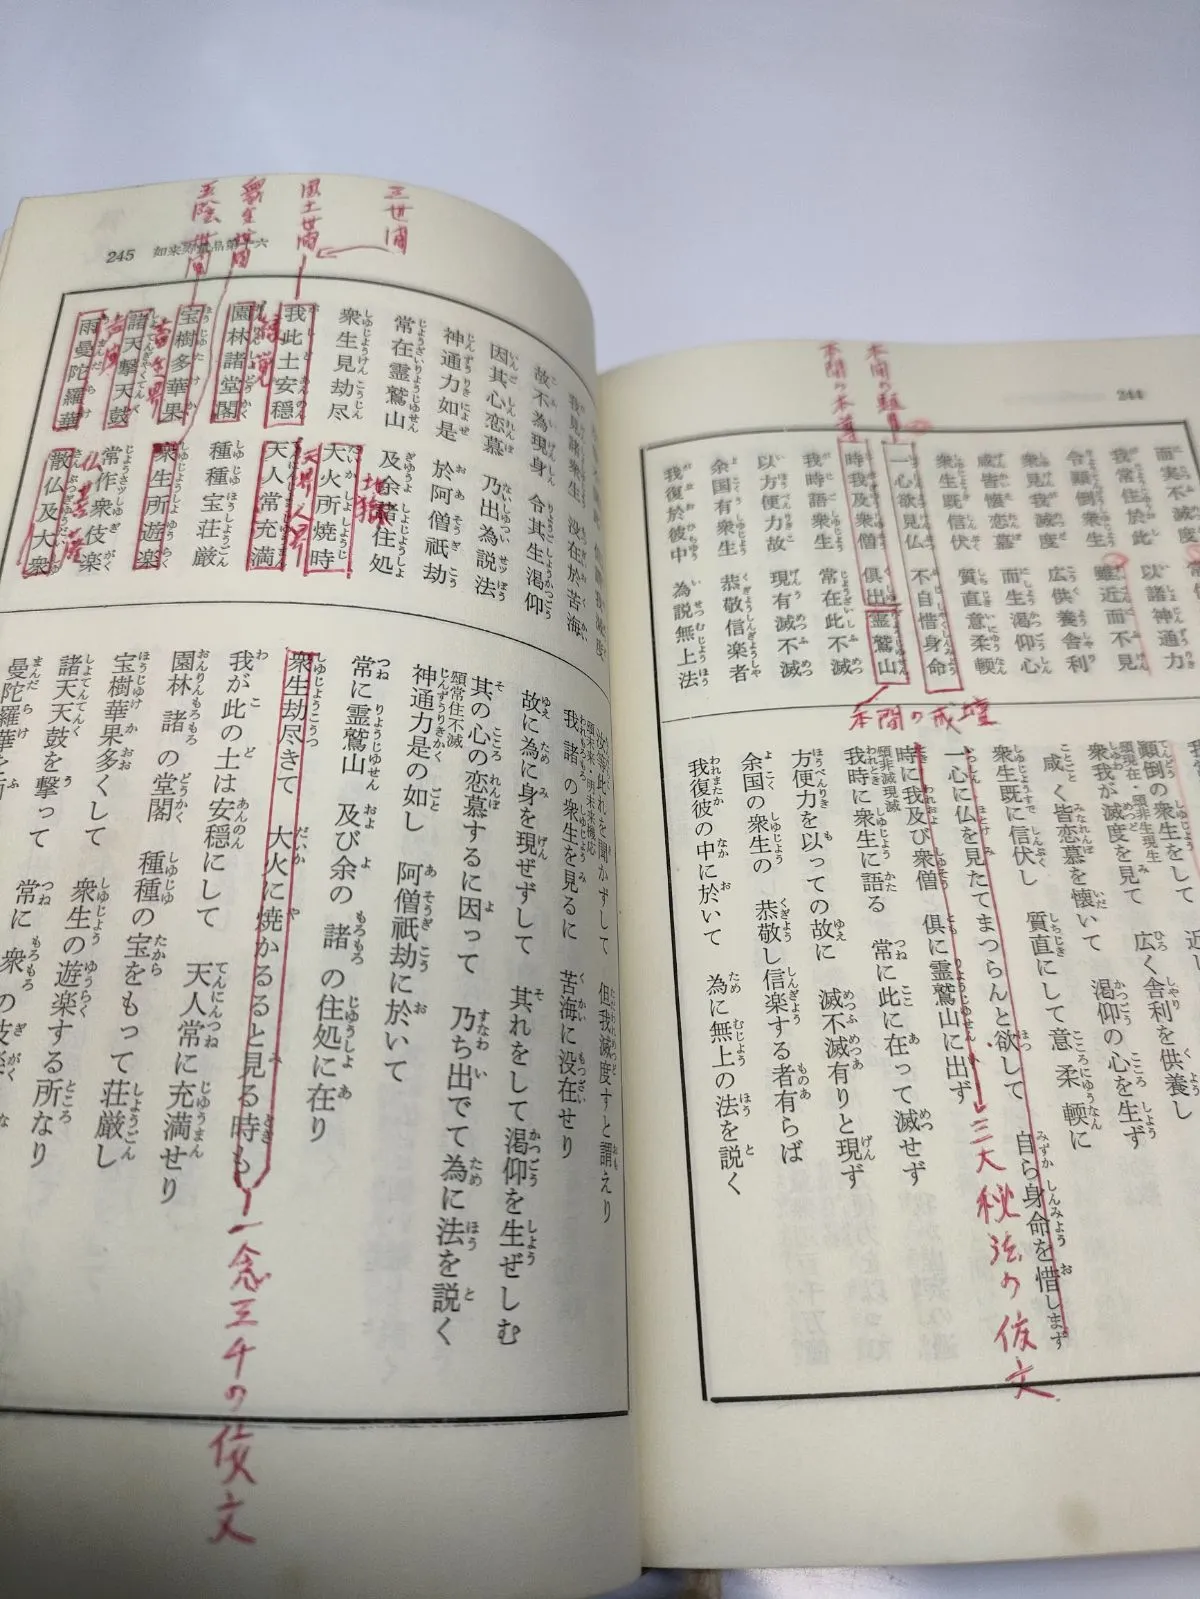 244
而実不滅度
我常住於此 以諸神通力
令顛倒衆生 雖近而不見
衆見我滅度 広供養舎利
咸皆懐恋慕 而生渇仰心
衆生既信伏 質直意柔輭
一心欲見仏 不自惜身命
時我及衆僧 倶出霊鷲山
我時語衆生 常在此不滅
以方便力故 現有滅不滅
余国有衆生 恭敬信楽者
我復於彼中 為説無上法
本門の題目
本門の本尊
本門の戒壇
顛倒の衆生をして
顕現在・顕非生現生
衆我が滅度を見て 広く舎利を供養し
咸く皆恋慕を懐いて 渇仰の心を生ず
衆生既に信伏し 質直にして意柔輭に
一心に仏を見たてまつらんと欲して 自ら身命を惜しまず
時に我及び衆僧 倶に霊鷲山に出ず
顕非滅現滅
我時に衆生に語る 常に此に在って滅せず
方便力を以っての故に 滅不滅有りと現ず
余国の衆生の 恭敬し信楽する者有らば
我復彼の中に於いて 為に無上の法を説く
三大秘法の依文
245 如来寿量品第十六
三世間
国土世間
衆生世間
五陰世間
我見諸衆生 没在於苦海
故不為現身 令其生渇仰
因其心恋慕 乃出為説法
神通力如是 於阿僧祇劫
常在霊鷲山 及余諸住処
衆生見劫尽 大火所焼時
我此土安穏 天人常充満
園林諸堂閣 種種宝荘厳
宝樹多華果 衆生所遊楽
諸天撃天鼓 常作衆伎楽
雨曼陀羅華 散仏及大衆
地獄
天界人界
縁覚
声聞
仏
菩薩
汝等此れを聞かずして 但我滅度すと謂えり
顕未来・明未来機応
我諸の衆生を見るに 苦海に没在せり
故に為に身を現ぜずして 其れをして渇仰を生ぜしむ
其の心の恋慕するに因って 乃ち出でて為に法を説く
顕常住不滅
神通力是の如し 阿僧祇劫に於いて
常に霊鷲山 及び余の諸の住処に在り
衆生劫尽きて 大火に焼かるると見る時も
我が此の土は安穏にして 天人常に充満せり
園林諸の堂閣 種種の宝をもって荘厳し
宝樹華果多くして 衆生の遊楽する所なり
諸天天鼓を撃って 常に衆の伎楽
曼陀羅華を
一念三千の依文